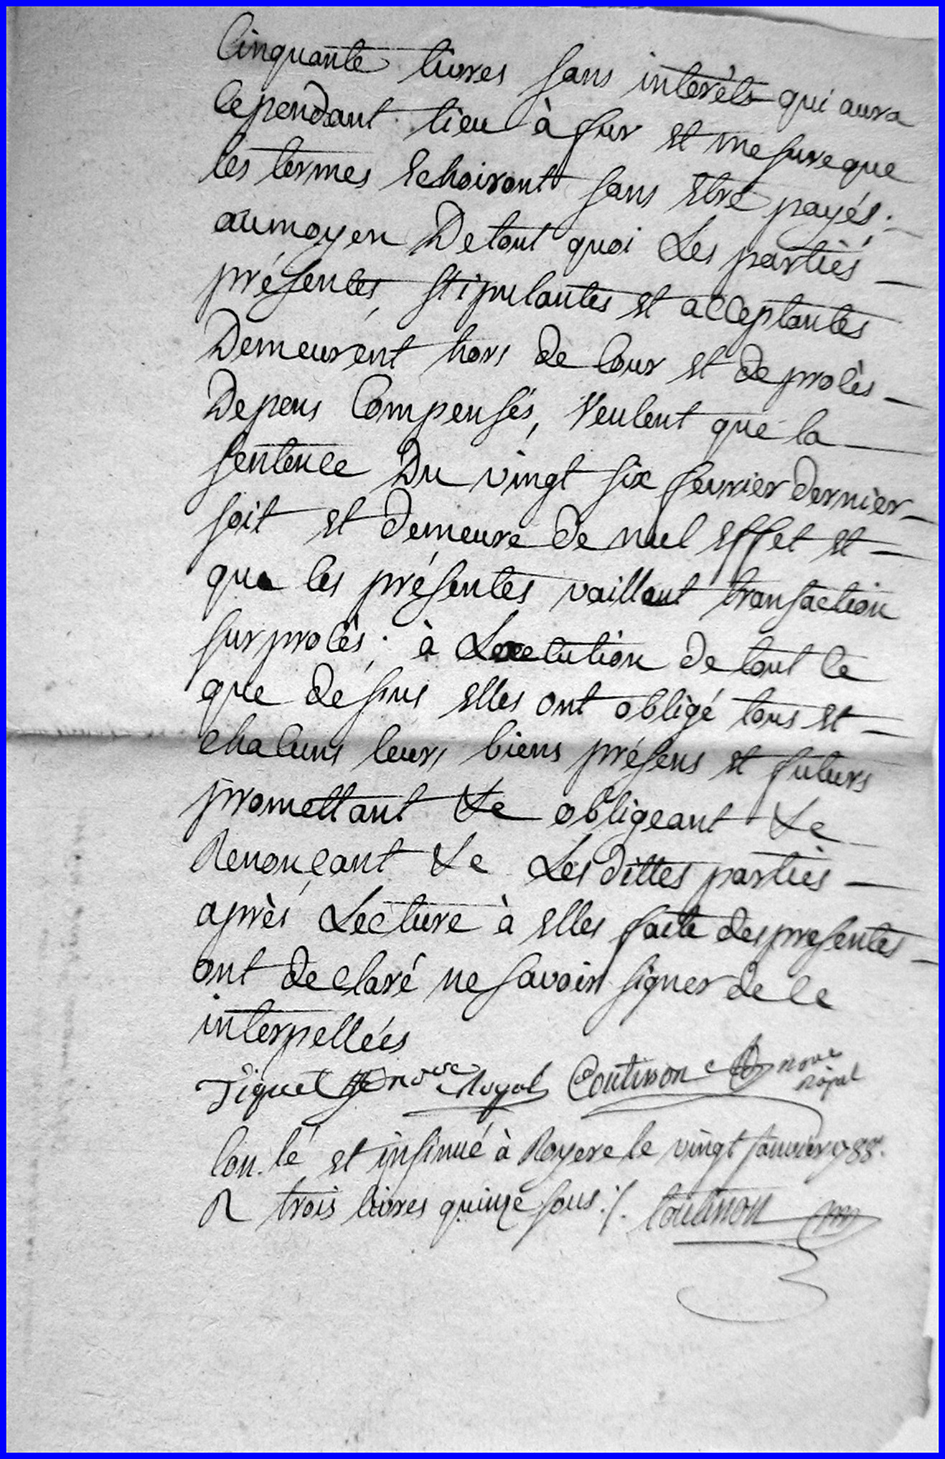 Cinquante livres sans interêts qui aura
cependant lieu à fur et mesure que
les termes echoiront sans etre payés.
au moyen De tout quoi Les parties
présentes, stipulantes et acceptantes
Demeurent hors de Cour et de procès
Depens Compensés, Veulent que la
sentence Du vingt six fevrier dernier
soit et demeure de nul effet et
que les présentes vaillent transaction
sur procès; à Lexecution de tout ce
que dessus elles ont obligé tous et
chacuns leurs biens présens et futurs
promettant &e obligeant &e
Renonçant &e Les dittes parties
après Lecture à elles faite des presentes
ont declaré ne savoir signer de ce
interpellées
Tiquet nore Royal Coutisson nore
royal
Con. lé et insinué à Royere le vingt Janvier 1788.
R trois livres quinze sous ./. Coutisson